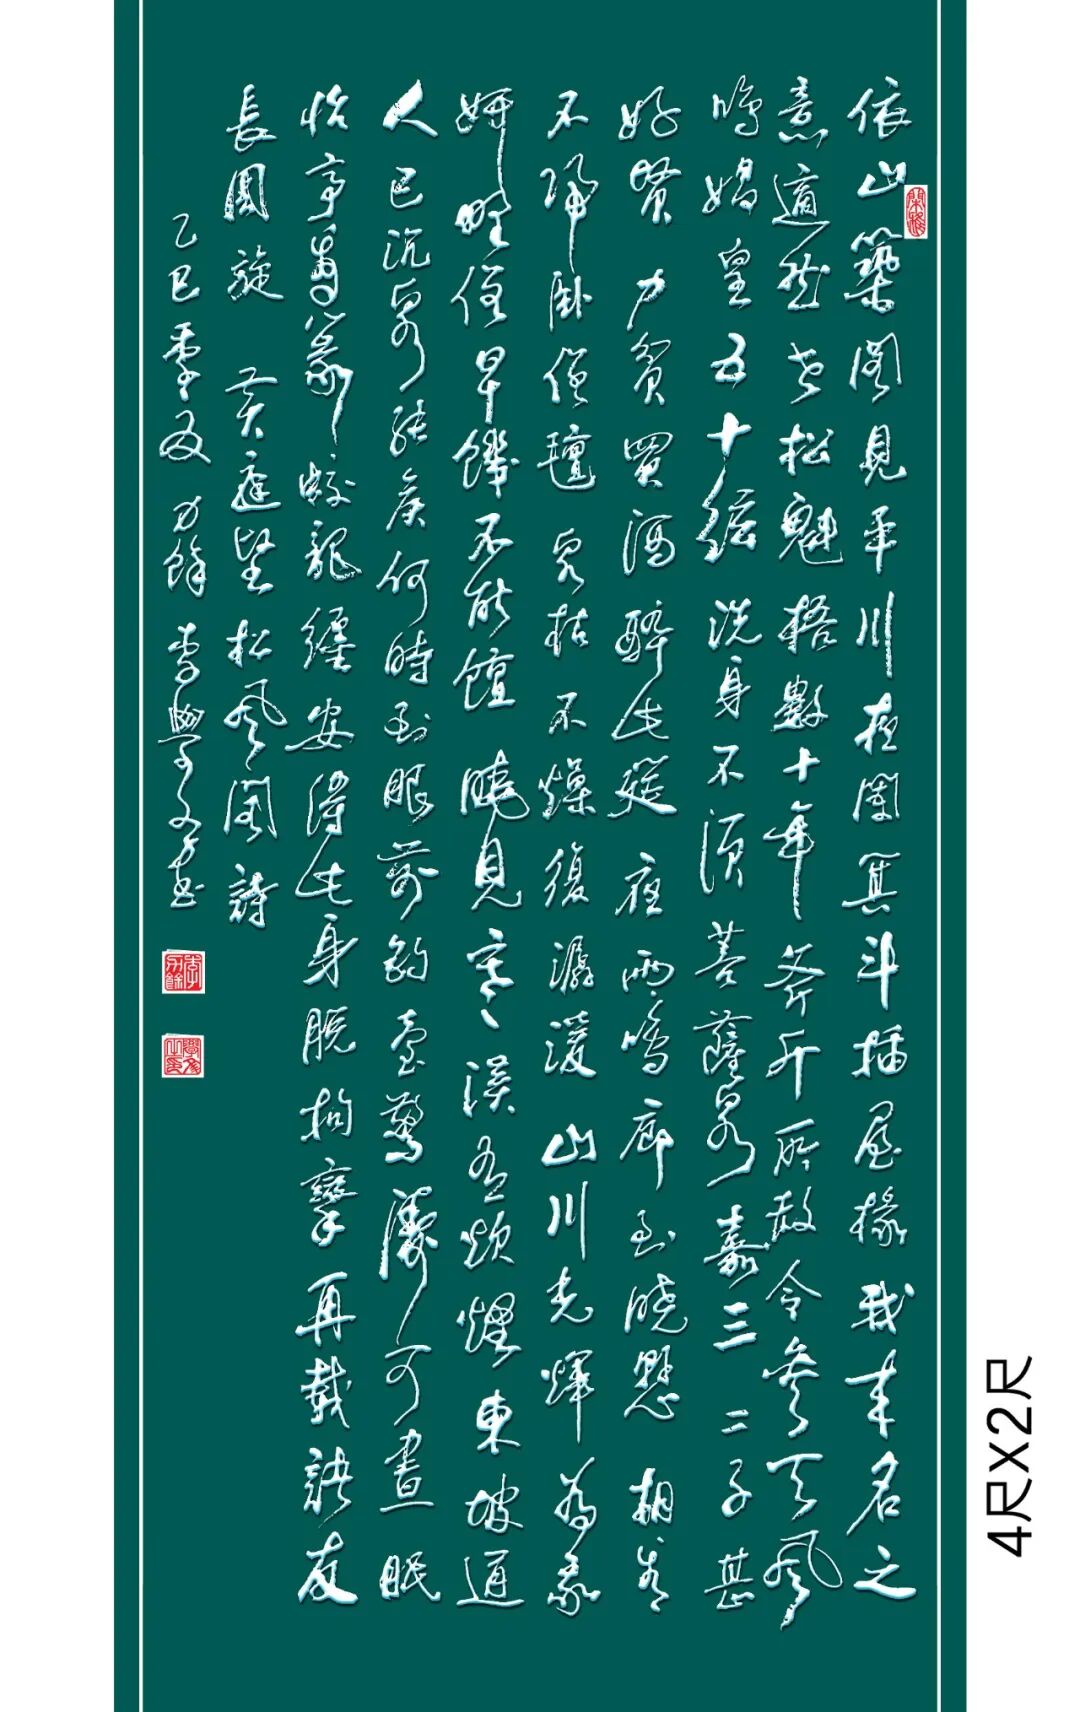 依山築閣見平川夜闌箕斗插屋椽我来名之
意適然老松魁梧數十年斧斤所赦今參天風
鳴媧皇五十絃洗身不須菩薩泉嘉三二子甚
好賢力貧買酒醉此筵夜雨鳴廊到曉懸相看
不歸卧僧氈泉枯石燥復潺湲山川光輝為我
妍野僧早饑不能饘曉見寒溪有炊煙東坡道
人已沉泉張侯何時到眼前釣臺驚濤可晝眠
怡亭看篆蛟龍纏安得此身脫拘攣舟載諸友
長周旋 黃庭堅松風閣詩
乙巳季夏 力餘 李學文書
4尺X2尺